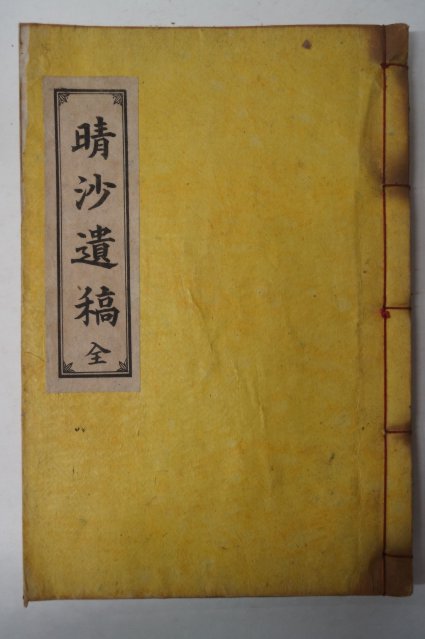 晴沙遺稿 全